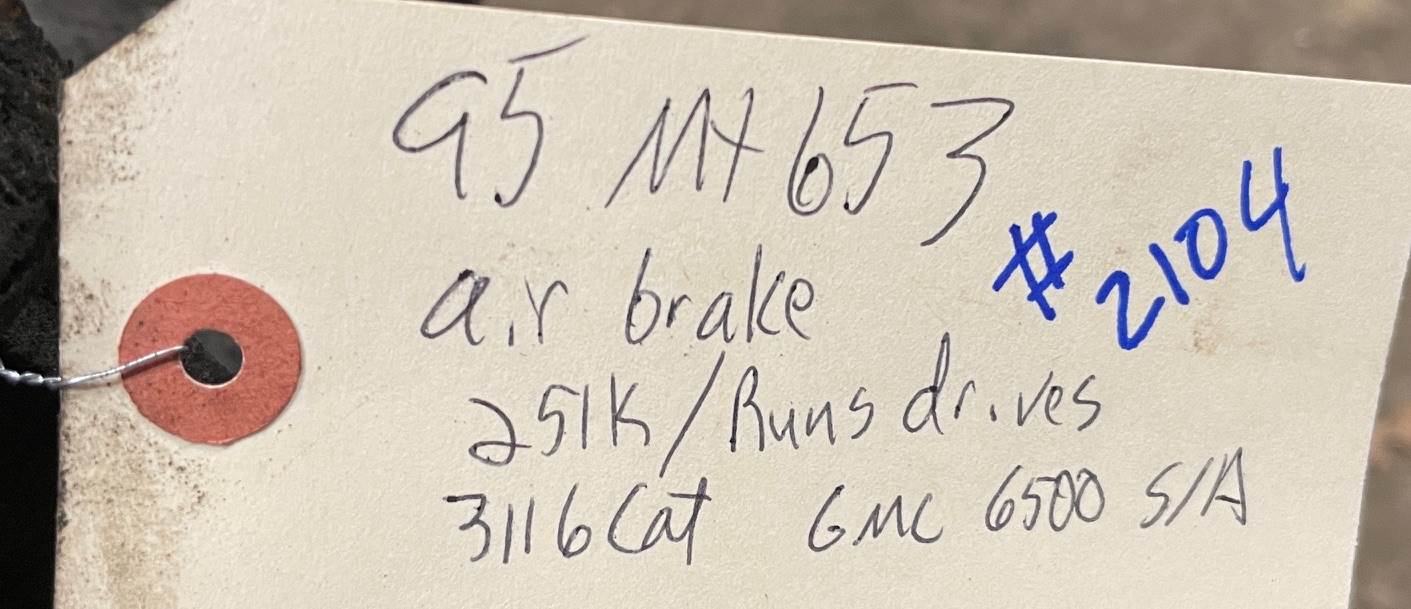 95 Mt653
#2104
air brake
251K/Runs drives
3116 Cat GMC 6500 S/A